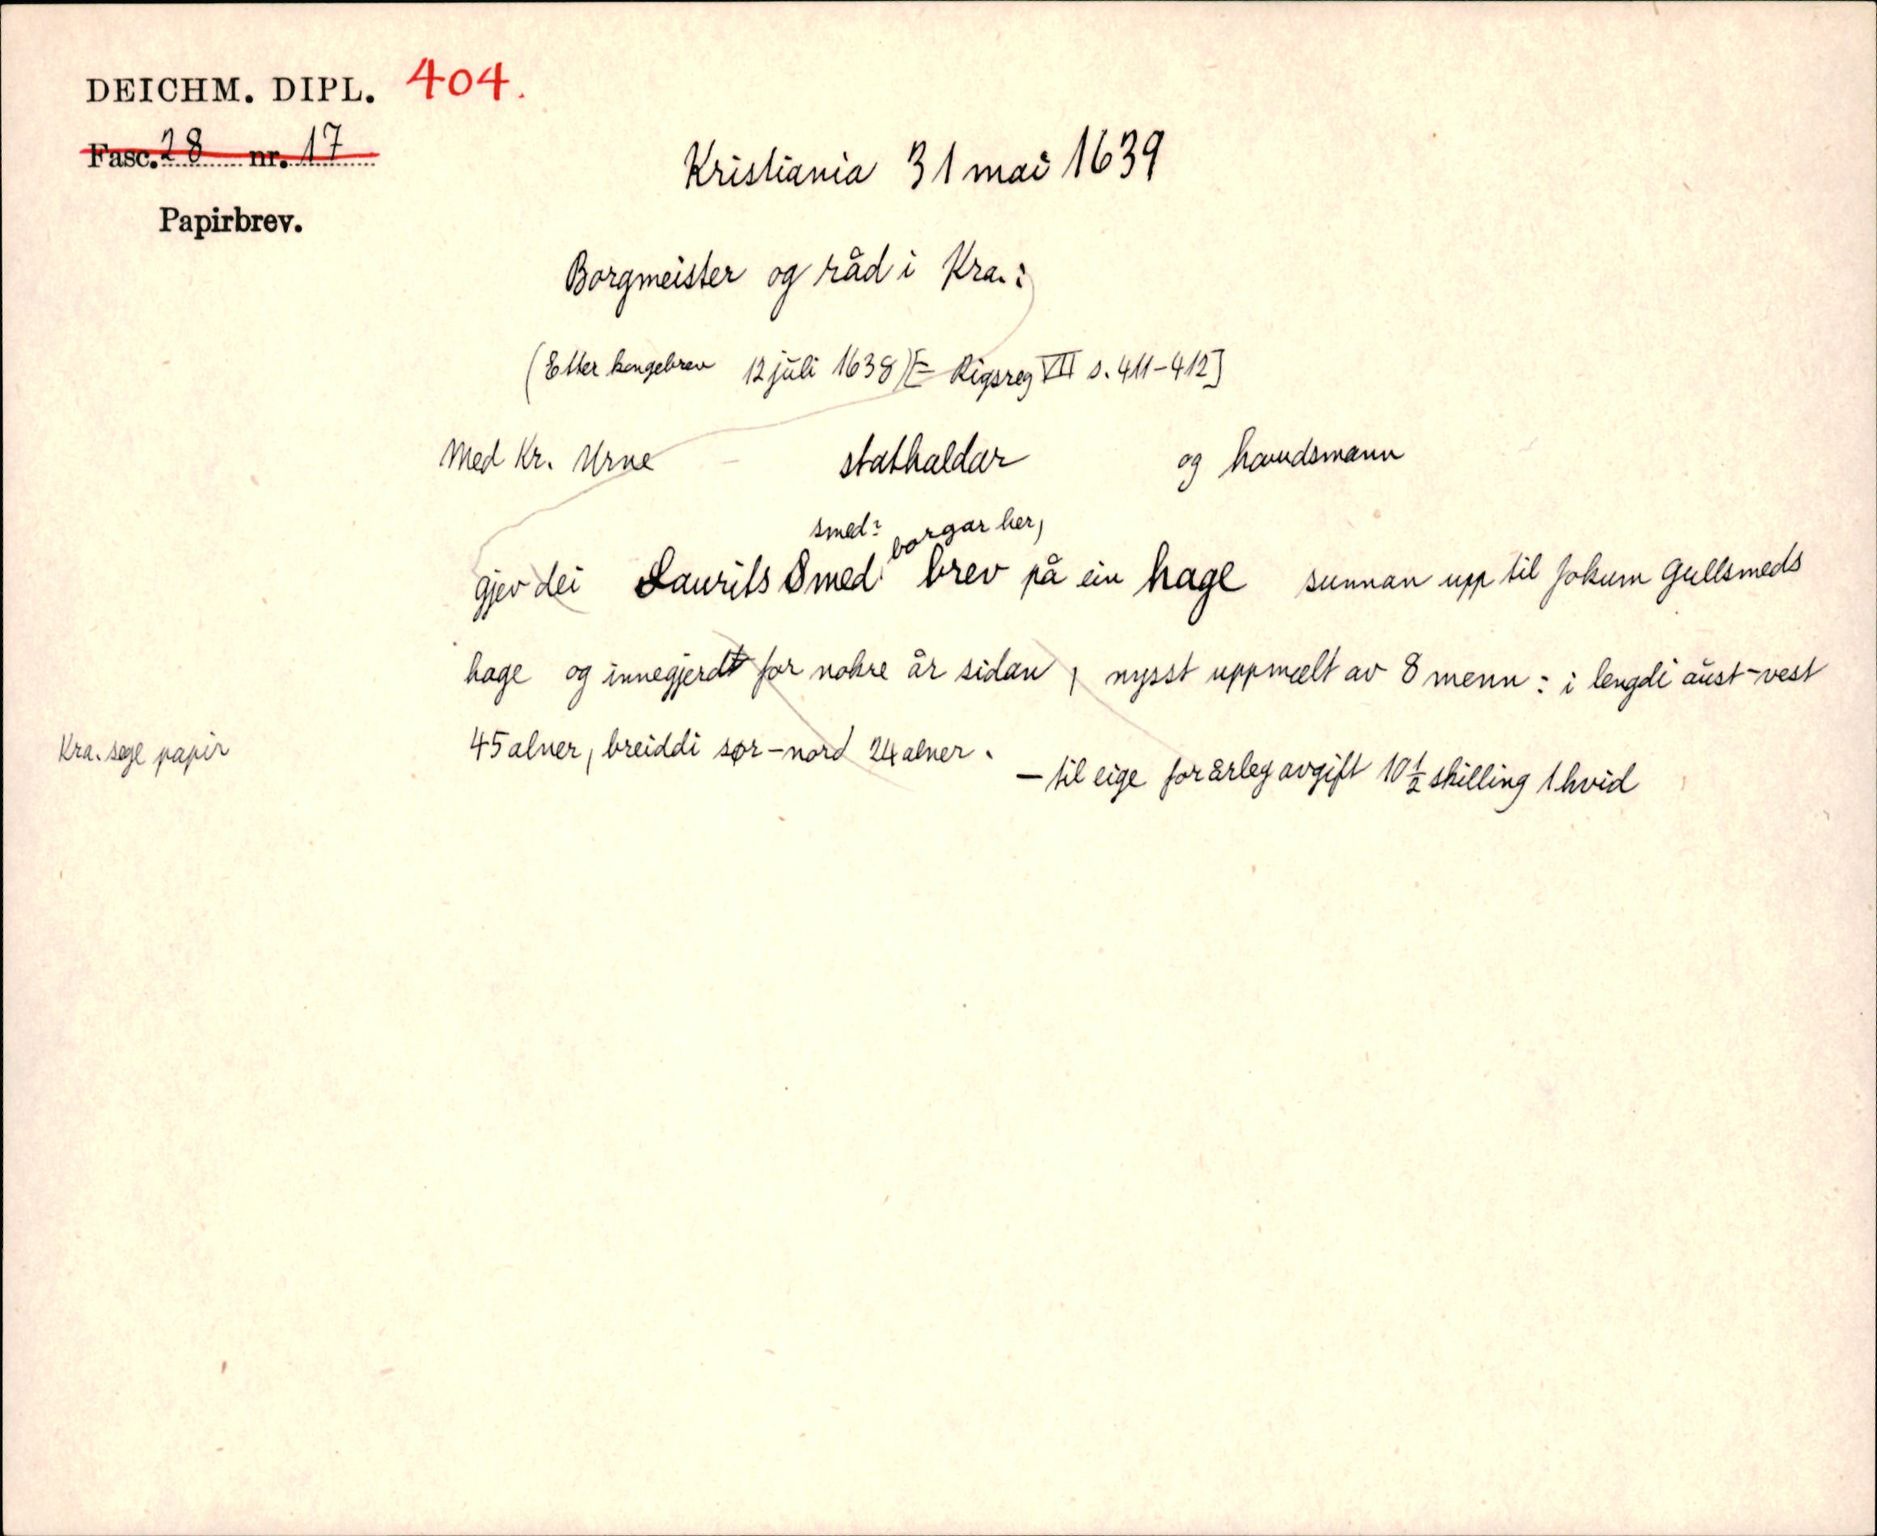 DEICHM. DIPL. 404.
Fasc. 28 nr. 17
Papirbrev.
Kristiania 31 mai 1639
Borgmeister og råd i Kra.:
(Etter kongebrev 12 juli 1638) [= Rigsreg VII s. 411-412]
Med Kr. Urne stathaldar og haudsmann
smed: borgar her,
gjev dei Laurits Smed brev på ein hage sunnan upp til Jokum Gullsmeds
hage og innegjerdt for nokre år sidan, nysst uppmælt av 8 menn: i lengdi aust-vest
45 alner, breiddi sør-nord 24 alner.
— til eige for årleg avgift 10 1/2 skilling 1 hvid
Kra. segl papir